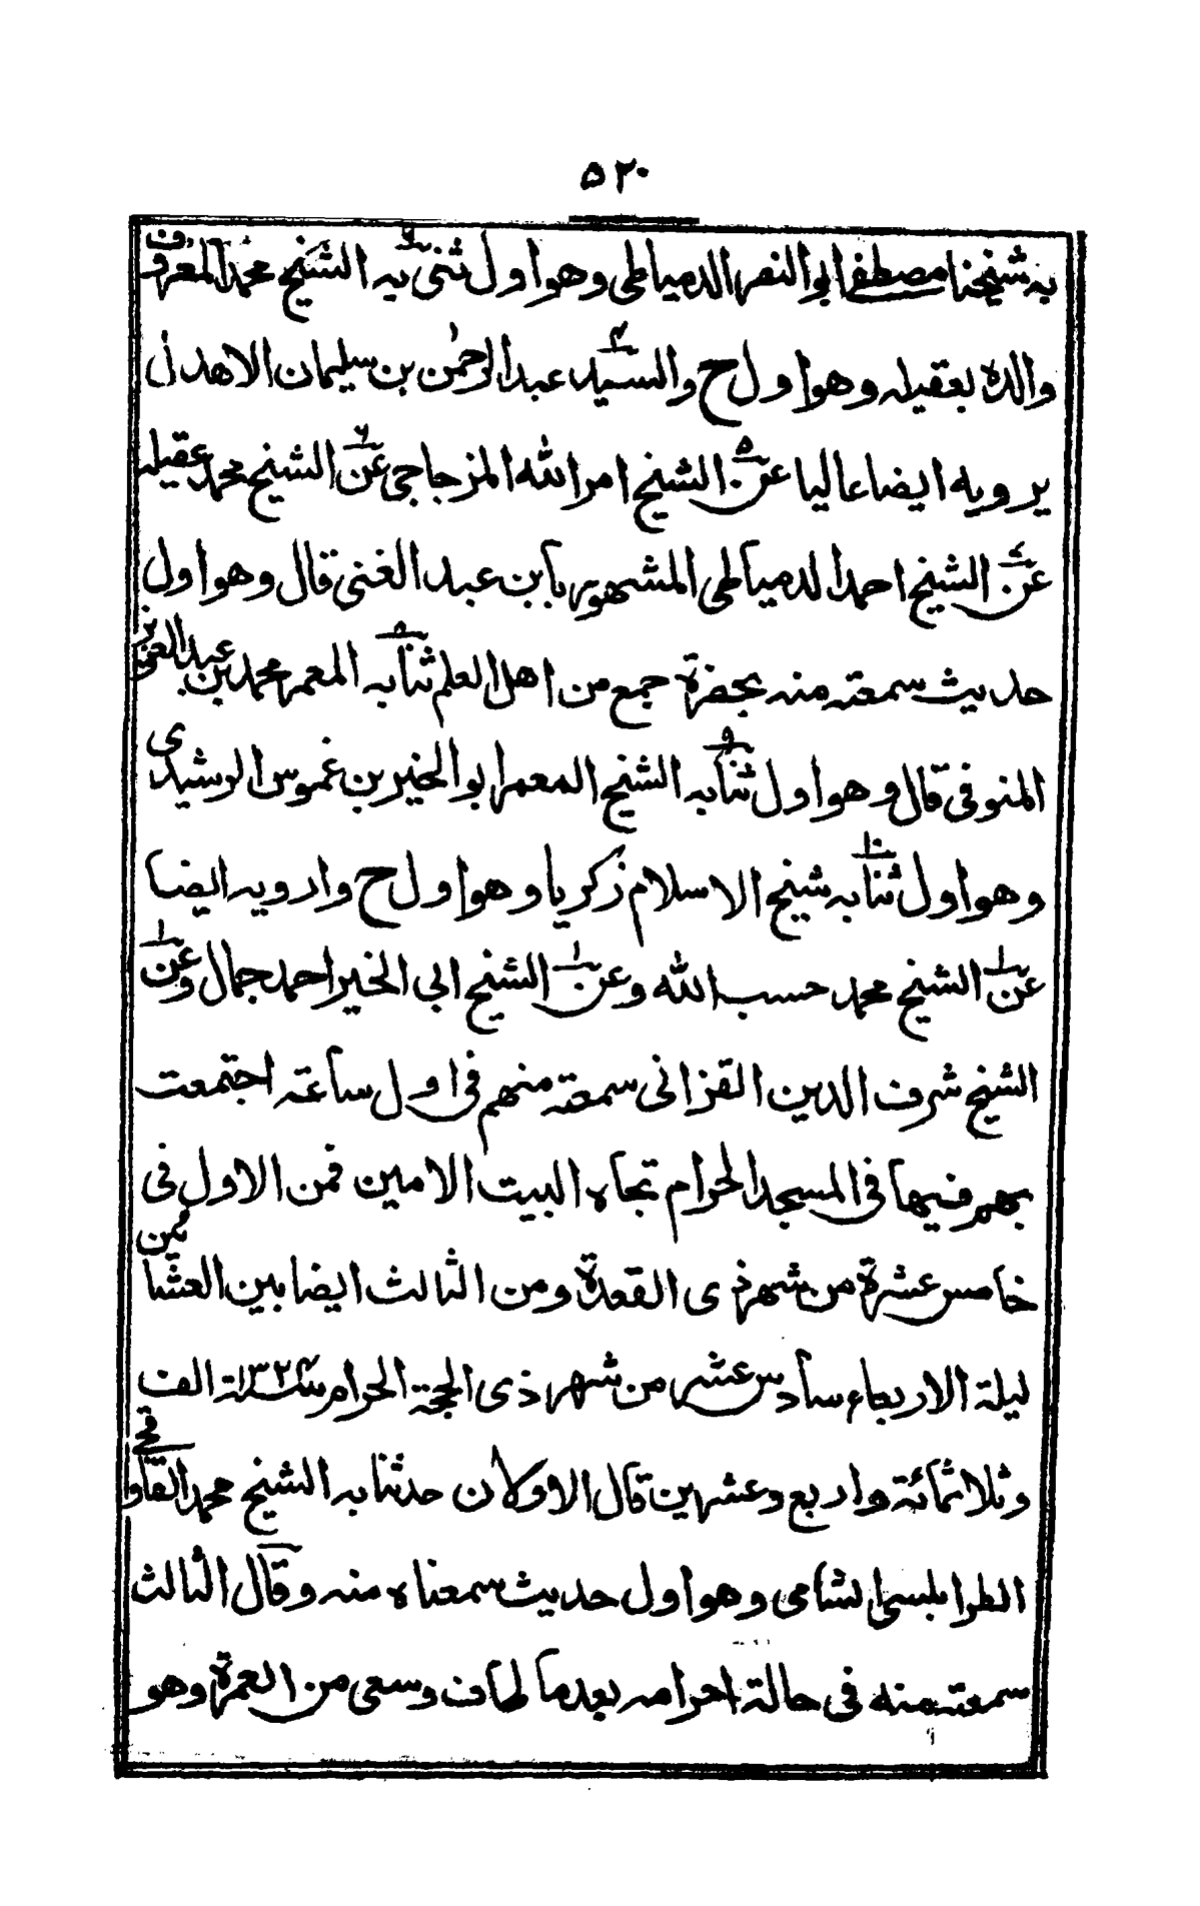 ٥٢٠
به شيخنا مصطفى ابو النصر الدمياطي وهو اول ثنى به الشيخ محمد المعروف
والده بعقيله وهو اول ح والسيد عبد الرحمٰن بن سليمان الاهدل
يرويه ايضا عاليا عن الشيخ امر الله المزجاجي عن الشيخ محمد عقيله
عن الشيخ احمد الدمياطي المشهور بابن عبد الغنى قال وهو اول
حديث سمعته منه بحضرة جمع من اهل العلم ثنا به المعمر محمد بن عبد العزيز
المنوفى قال وهو اول ثنا به الشيخ المعمر ابو الخير بن غموس الرشيدى
وهو اول ثنا به شيخ الاسلام زكريا وهو اول ح وارويه ايضا
عن الشيخ محمد حسب الله وعن الشيخ ابى الخير احمد جمال وعن
الشيخ شرف الدين القزانى سمعته منهم فى اول ساعة اجتمعت
بهم فيها فى المسجد الحرام تجاه البيت الامين فمن الاول فى ثمن
خامس عشرة من شهر ذى القعدة ومن الثالث ايضا بين العشا
ليلة الاربعاء سادس عشر من شهر ذى الحجة الحرام سنة ١٣٢٤ الف
وثلاثمائة واربع وعشرين قال الاولان حدثنا به الشيخ محمد القاوقجى
الطرابلسى الشامى وهو اول حديث سمعناه منه وقال الثالث
سمعته منه فى حالة احرامه بعدما طاف وسعى من العمرة وهو